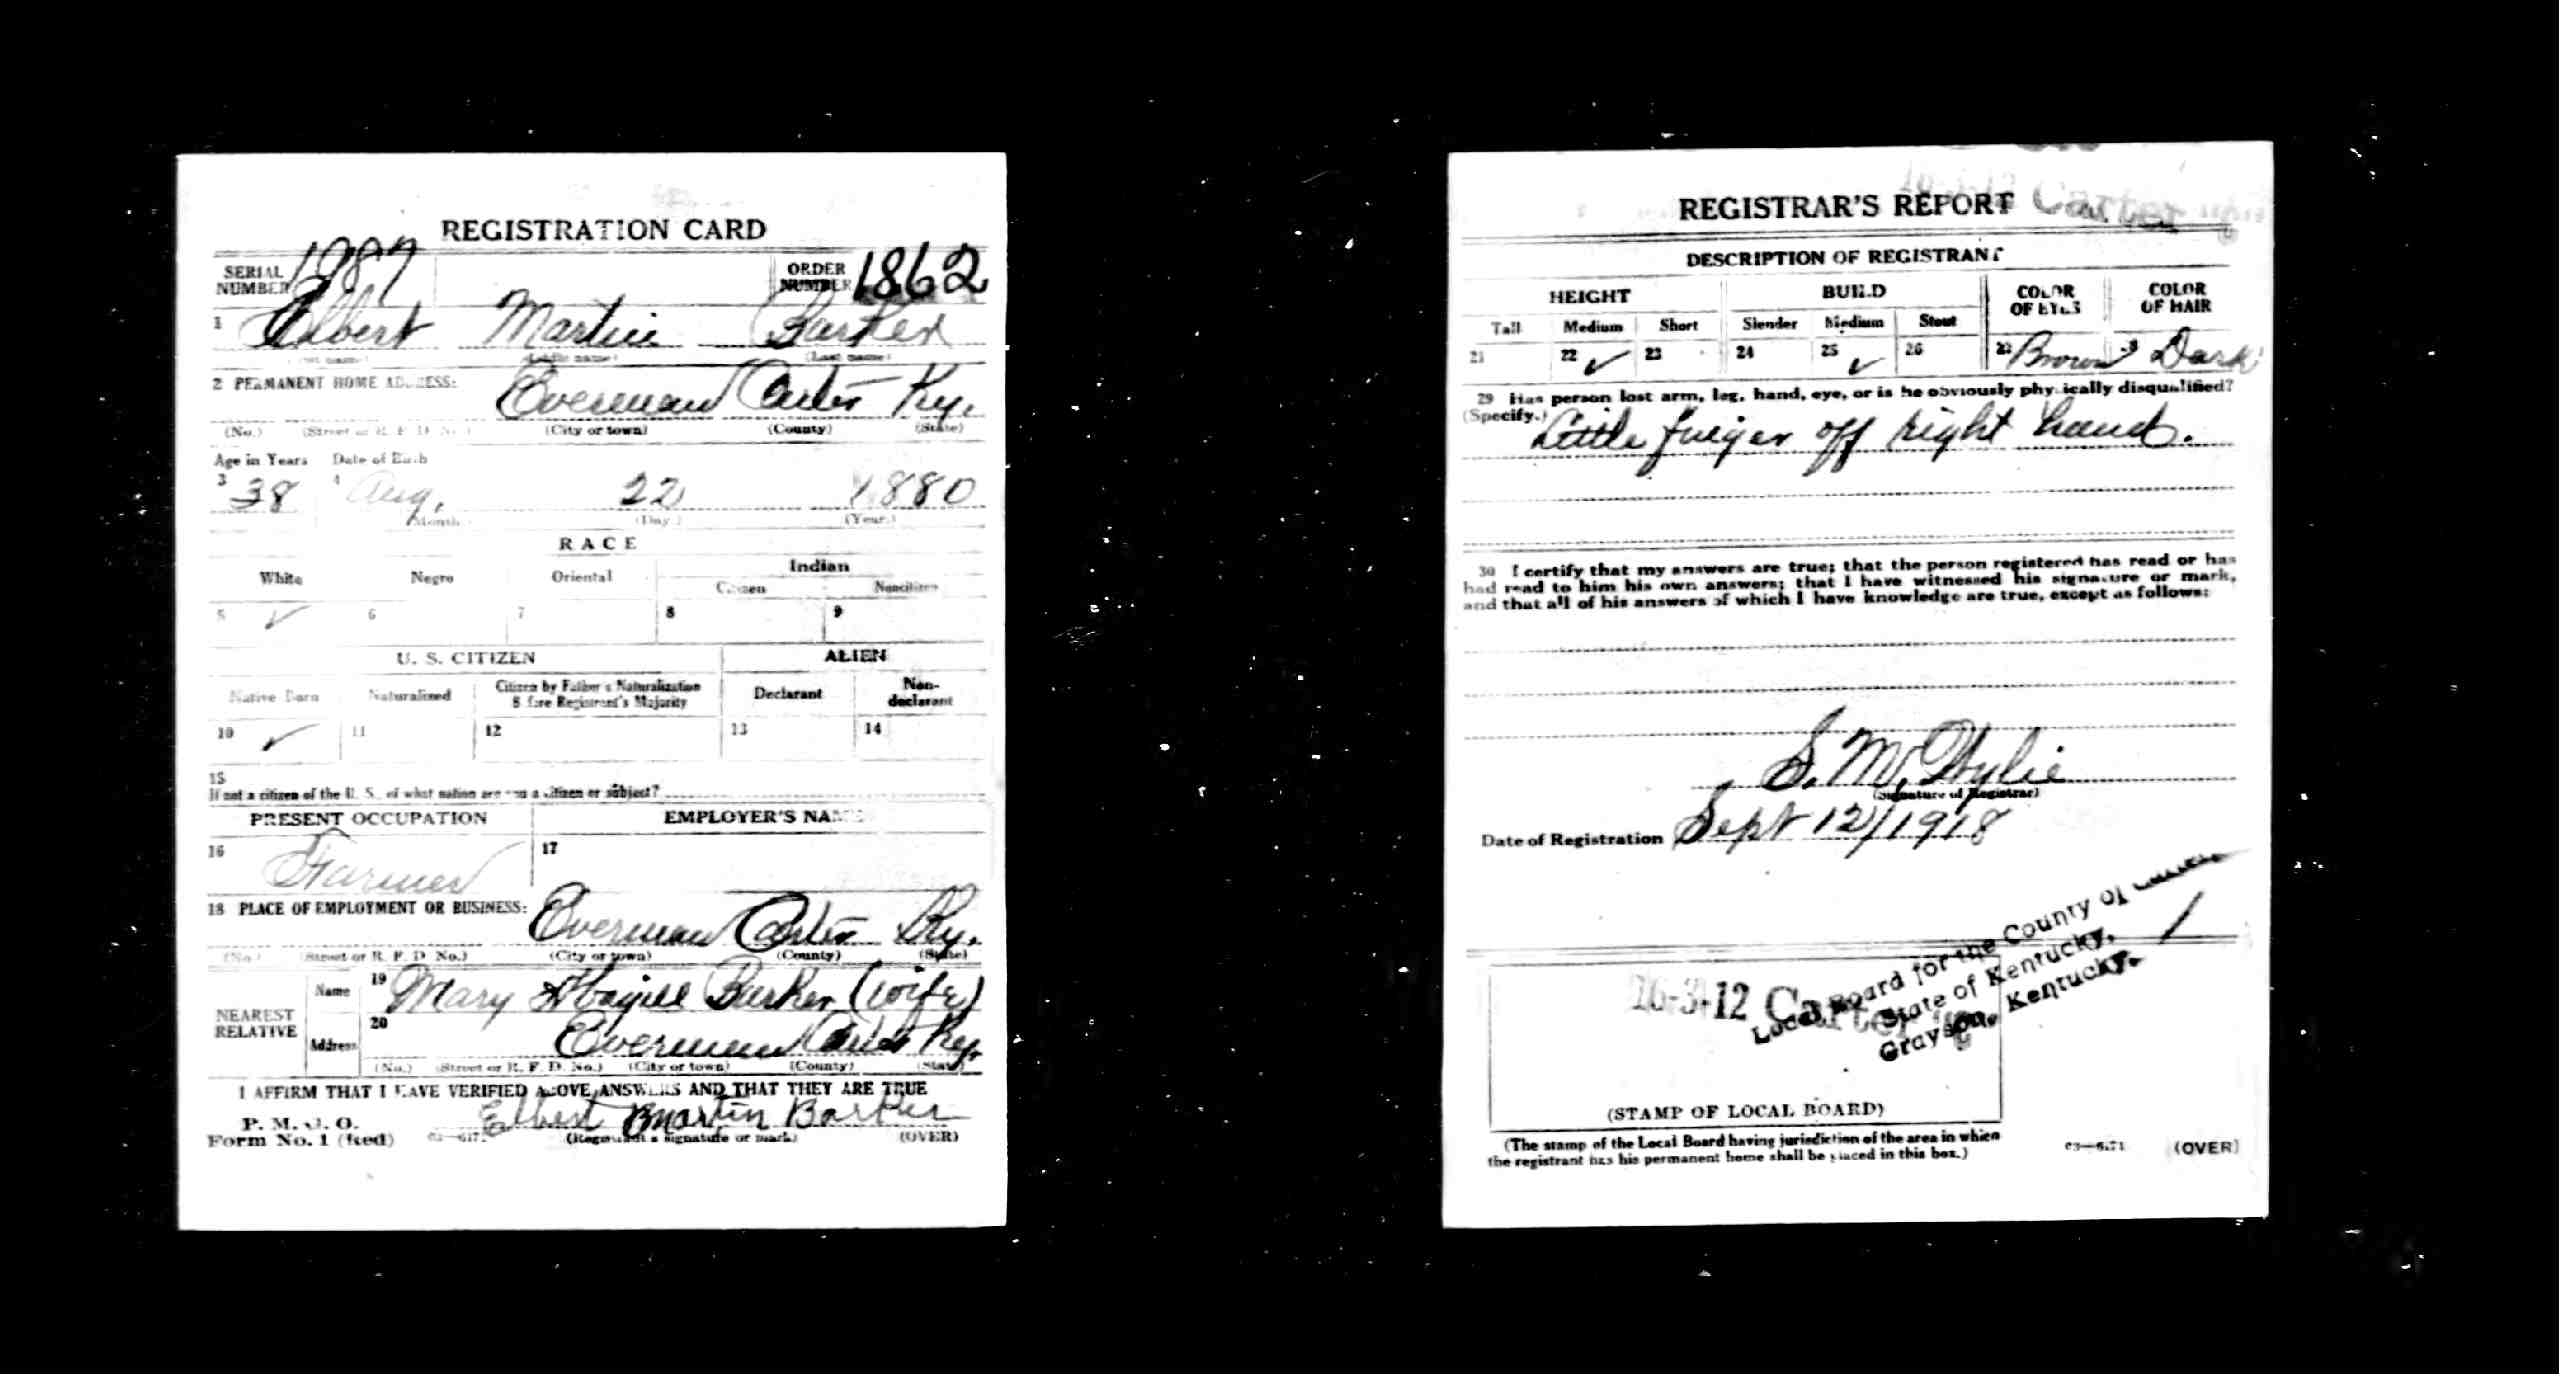 REGISTRATION CARD
SERIAL NUMBER 1987 ORDER NUMBER 1862
1 Elbert Martin Barker
(First name) (Middle name) (Last name)
2 PERMANENT HOME ADDRESS:
Everman Carter Ky.
(No.) (Street or R. F. D. No.) (City or town) (County) (State)
Age in Years Date of Birth
3 38 4 Aug. 22 1880
(Month) (Day.) (Year.)
RACE
White Negro Oriental Indian
Citizen Noncitizen
5 ✓ 6 7 8 9
U. S. CITIZEN ALIEN
Native Born Naturalized Citizen by Father's Naturalization Before Registrant's Majority Declarant Non-declarant
10 ✓ 11 12 13 14
15
If not a citizen of the U. S., of what nation are you a citizen or subject?
PRESENT OCCUPATION EMPLOYER'S NAME
16 Farmer 17
18 PLACE OF EMPLOYMENT OR BUSINESS:
Everman Carter Ky.
(No.) (Street or R. F. D. No.) (City or town) (County) (State)
NEAREST RELATIVE Name 19 Mary Barker (wife)
Address 20 Everman Carter Ky.
(No.) (Street or R. F. D. No.) (City or town) (County) (State)
I AFFIRM THAT I HAVE VERIFIED ABOVE ANSWERS AND THAT THEY ARE TRUE
P. M. G. O.
Form No. 1 (Red) Elbert Martin Barker
(Registrant's signature or mark) (OVER)
REGISTRAR'S REPORT Carter
DESCRIPTION OF REGISTRANT
HEIGHT BUILD COLOR OF EYES COLOR OF HAIR
Tall Medium Short Slender Medium Stout
21 22 ✓ 23 24 25 ✓ 26 Brown Dark
29 Has person lost arm, leg, hand, eye, or is he obviously physically disqualified?
(Specify.) Little finger off right hand.
30 I certify that my answers are true; that the person registered has read or has
had read to him his own answers; that I have witnessed his signature or mark,
and that all of his answers of which I have knowledge are true, except as follows:
S. M. Wylie
(Signature of Registrar)
Date of Registration Sept 12/1918
Local Board for the County of Carter
State of Kentucky,
Grayson, Kentucky.
1
16-3-12 Carter
(STAMP OF LOCAL BOARD)
(The stamp of the Local Board having jurisdiction of the area in which
the registrant has his permanent home shall be placed in this box.)
(OVER)